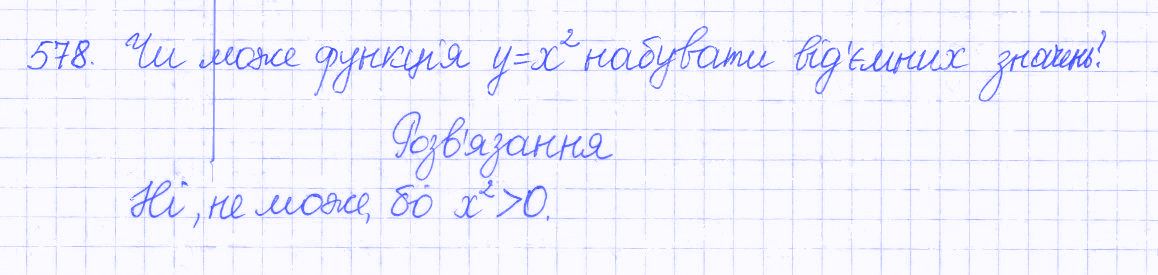 578. Чи може функція y=x² набувати від'ємних значень?
Розв'язання
Ні, не може, бо x²>0.